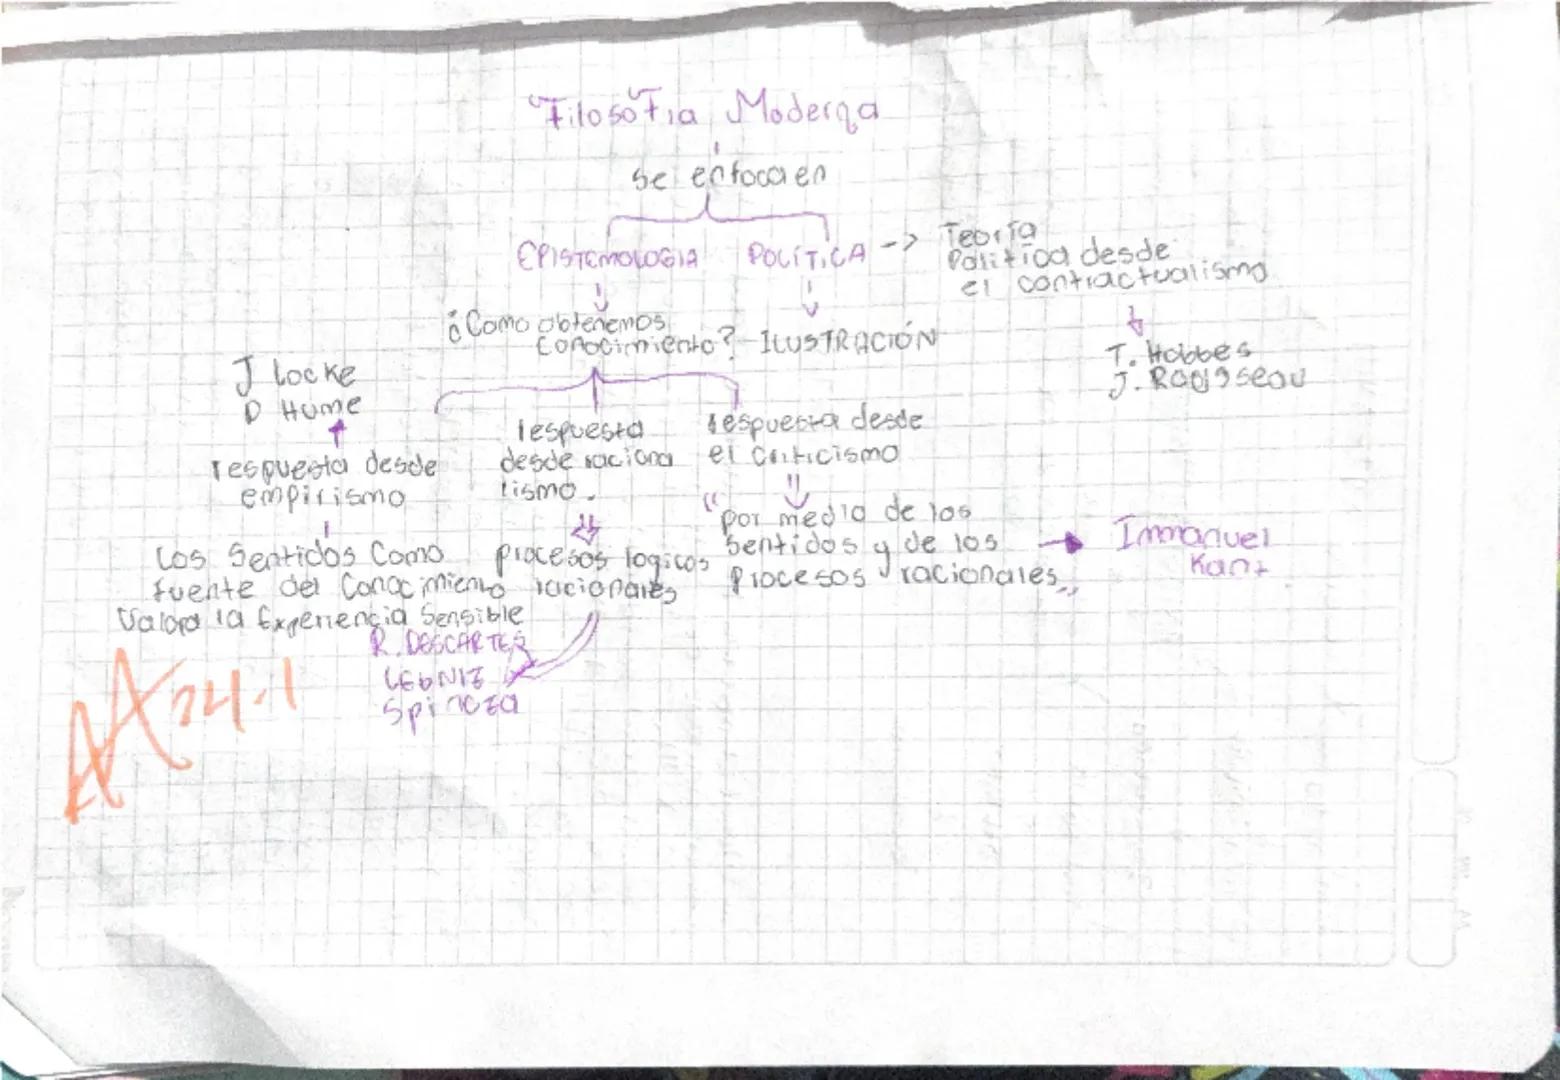 Filosofia Moderna
se enfoca en
EPISTEMOLOGIA
POLÍTICA ->
Teoría
Politica desde
el contractualismo
T. Hobbes
J. Rousseau
ILUSTRACIÓN
¿Como obtenemos
conocimiento?
J Locke
D Hume
respuesta desde
empirismo
Los Sentidos Como
fuente del Conocimiento
Valora la Experiencia Sensible
respuesta
desde raciona
lismo.
procesos logicos
racionales
R. DESCARTES
LEBNIZ
Spinoza
respuesta desde
el criticismo
"por medio de los
sentidos y de los
procesos racionales"
Immanuel
Kant